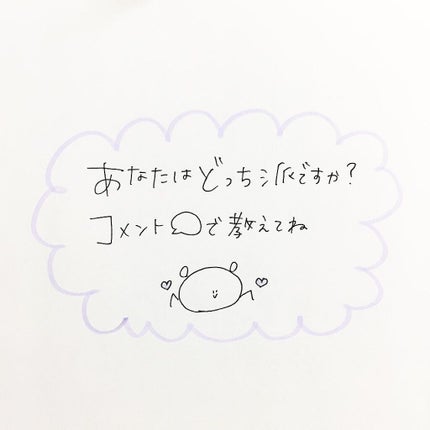 あなたはどっち派ですか?
コメントで教えてね